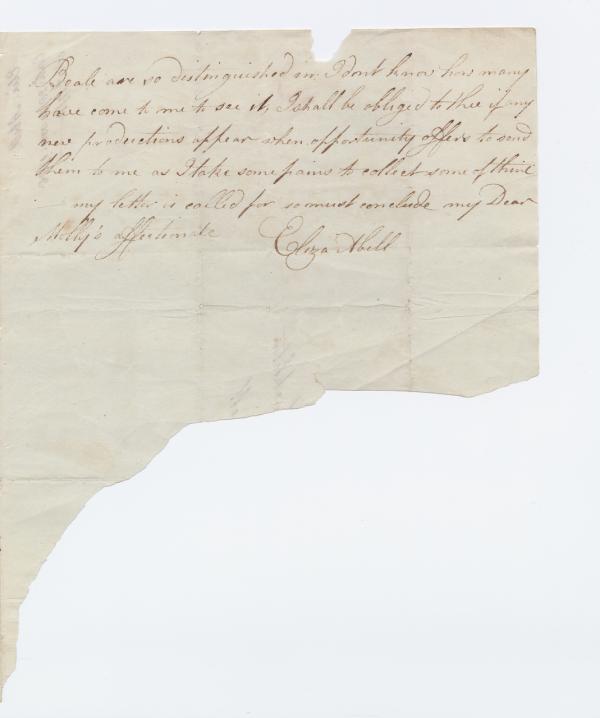 Beale are so distinguished in. I dont know how many
have come to me to see it, I shall be obliged to thee if any
new productions appear when opportunity offers to send
them to me as I take some pains to collect some of thine
my letter is called for so must conclude my Dear
Molly's affectionate Eliza Abell